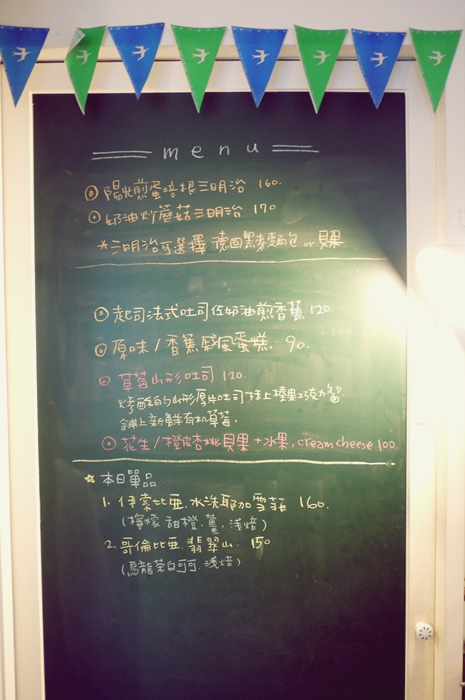 menu
陽光煎蛋培根三明治 160.
奶油炒蘑菇三明治 170
*三明治可選擇 德國黑麥麵包 or 貝果
起司法式吐司佐奶油煎香蕉 120
原味/香蕉戚風蛋糕. 90.
草莓山形吐司 120.
烤酥的山形厚片吐司抹上榛果巧克力醬
鋪上新鮮有机草莓.
花生/橙 貝果+水果. cream cheese 100.
☆本日單品
1. 伊索比亞. 水洗耶加雪菲 160.
(檸檬. 甜橙. 薑, 淺焙)
2. 哥倫比亞. 翡翠山. 150
(烏龍茶.白可可. 淺焙)